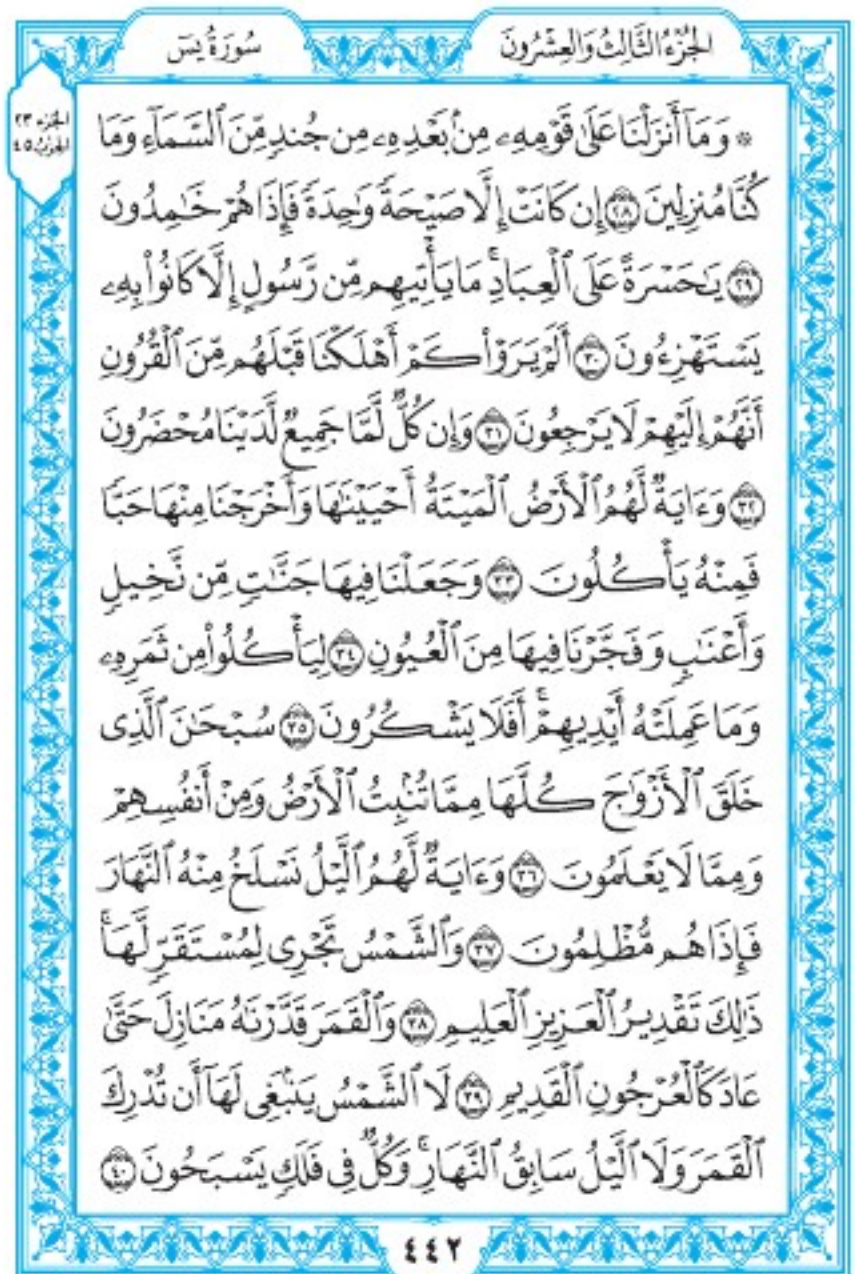 سُورَةُ يسٓ
الجُزْءُ الثَّالِثُ وَالعِشْرُونَ
الجزء ٢٣
الحزب ٤٥
۞ وَمَآ أَنزَلْنَا عَلَىٰ قَوْمِهِۦ مِنۢ بَعْدِهِۦ مِن جُندٍ مِّنَ ٱلسَّمَآءِ وَمَا
كُنَّا مُنزِلِينَ ٢٨ إِن كَانَتْ إِلَّا صَيْحَةً وَٰحِدَةً فَإِذَا هُمْ خَٰمِدُونَ
٢٩ يَٰحَسْرَةً عَلَى ٱلْعِبَادِۚ مَا يَأْتِيهِم مِّن رَّسُولٍ إِلَّا كَانُوا۟ بِهِۦ
يَسْتَهْزِءُونَ ٣٠ أَلَمْ يَرَوْا۟ كَمْ أَهْلَكْنَا قَبْلَهُم مِّنَ ٱلْقُرُونِ
أَنَّهُمْ إِلَيْهِمْ لَا يَرْجِعُونَ ٣١ وَإِن كُلٌّ لَّمَّا جَمِيعٌ لَّدَيْنَا مُحْضَرُونَ
٣٢ وَءَايَةٌ لَّهُمُ ٱلْأَرْضُ ٱلْمَيْتَةُ أَحْيَيْنَٰهَا وَأَخْرَجْنَا مِنْهَا حَبًّا
فَمِنْهُ يَأْكُلُونَ ٣٣ وَجَعَلْنَا فِيهَا جَنَّٰتٍ مِّن نَّخِيلٍ
وَأَعْنَٰبٍ وَفَجَّرْنَا فِيهَا مِنَ ٱلْعُيُونِ ٣٤ لِيَأْكُلُوا۟ مِن ثَمَرِهِۦ
وَمَا عَمِلَتْهُ أَيْدِيهِمْۚ أَفَلَا يَشْكُرُونَ ٣٥ سُبْحَٰنَ ٱلَّذِى
خَلَقَ ٱلْأَزْوَٰجَ كُلَّهَا مِمَّا تُنۢبِتُ ٱلْأَرْضُ وَمِنْ أَنفُسِهِمْ
وَمِمَّا لَا يَعْلَمُونَ ٣٦ وَءَايَةٌ لَّهُمُ ٱلَّيْلُ نَسْلَخُ مِنْهُ ٱلنَّهَارَ
فَإِذَا هُم مُّظْلِمُونَ ٣٧ وَٱلشَّمْسُ تَجْرِى لِمُسْتَقَرٍّ لَّهَاۚ
ذَٰلِكَ تَقْدِيرُ ٱلْعَزِيزِ ٱلْعَلِيمِ ٣٨ وَٱلْقَمَرَ قَدَّرْنَٰهُ مَنَازِلَ حَتَّىٰ
عَادَ كَٱلْعُرْجُونِ ٱلْقَدِيمِ ٣٩ لَا ٱلشَّمْسُ يَنۢبَغِى لَهَآ أَن تُدْرِكَ
ٱلْقَمَرَ وَلَا ٱلَّيْلُ سَابِقُ ٱلنَّهَارِۚ وَكُلٌّ فِى فَلَكٍ يَسْبَحُونَ ٤٠
٤٤٢